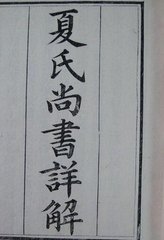 夏氏尚書詳解